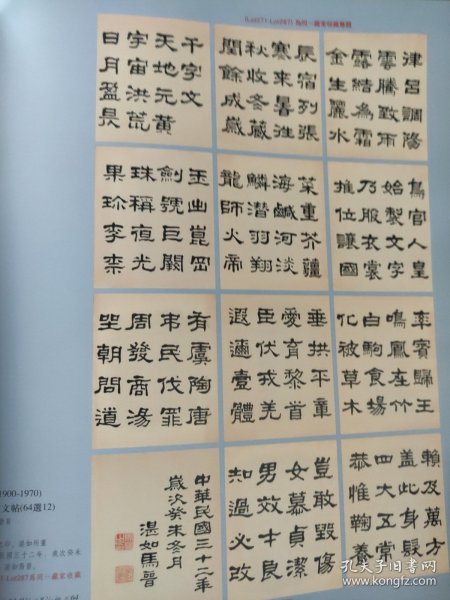 (Lot271-Lot287)為同一藏家收藏專題
千字文
天地元黄
宇宙洪荒
日月盈昃
辰宿列張
寒來暑往
秋收冬藏
閏餘成歲
律呂調陽
雲騰致雨
露結為霜
金生麗水
玉出崑岡
劍號巨闕
珠稱夜光
果珍李柰
菜重芥薑
海鹹河淡
鱗潛羽翔
龍師火帝
鳥官人皇
始製文字
乃服衣裳
推位讓國
有虞陶唐
弔民伐罪
周發商湯
坐朝問道
垂拱平章
愛育黎首
臣伏戎羌
遐邇壹體
率賓歸王
鳴鳳在竹
白駒食場
化被草木
賴及萬方
蓋此身髮
四大五常
恭惟鞠養
豈敢毀傷
女慕貞潔
男效才良
知過必改
中華民國三十二年
歲次癸未冬月
湛如馬晉
1900-1970)
文帖(64選12)
民國三十二年，歲次癸未
Lot287為同一藏家收藏
孔夫子旧书网